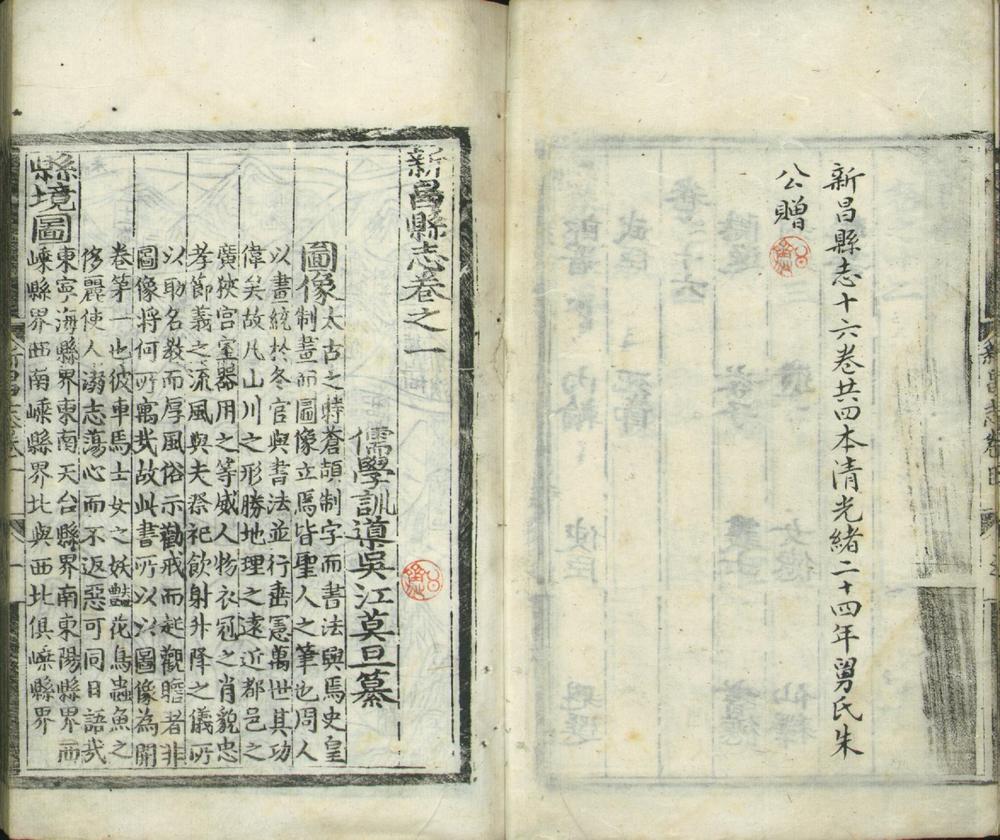 新昌縣志十六卷共四本清光緒二十四年舅氏朱
公贈
新昌縣志卷之一
儒學訓導吳江莫旦纂
圖像太古之時蒼頡制字而書法興焉史皇
制畫而圖像立焉皆聖人之筆也周人
以畫統於冬官與書法並行垂憲萬世其功
偉矣故凡山川之形勝地理之遠近郡邑之
廣狹宫室器用之等威人物衣冠之肖貌忠
孝節義之流風與夫祭祀飲射升降之儀所
以助名敎而厚風俗示勸戒而起觀瞻者非
圖像將何所寓哉故此書所以以圖像為開
卷第一也彼車馬士女之妖豔花鳥蟲魚之
侈麗使人溺志蕩心而不返惡可同日語哉
縣境圖
東寧海縣界東南天台縣界南東陽縣界西
嵊縣界西南嵊縣界北與西北俱嵊縣界